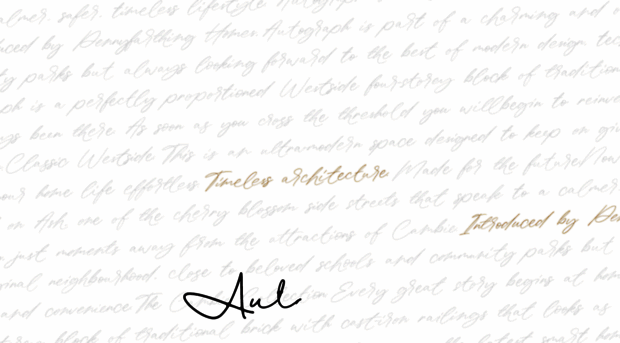 calmer, safer, timeless lifestyle Autograph
by Pennyfarthing Homes. Autograph is part of a charming and
by parks but always looking forward to the best of modern design, tec
ph is a perfectly proportioned Westside four-storey block of tradition
ys been there As soon as you cross the threshold you will begin to reinve
Classic Westside This is an ultra-modern space designed to keep on giv
our home life effortless Timeless architecture Made for the future Now
on Ash, one of the cherry blossom side streets that speak to a calmer
just moments away from the attractions of Cambie Introduced by Pen
ginal neighbourhood, close to beloved schools and community parks but
and convenience The Every great story begins at hom
block of traditional brick with cast-iron railings that looks as
latest smart home
Aul